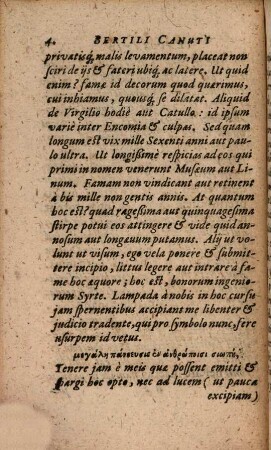 4. BERTILI CANUTI
privatisq́; malis levamentum, placeat non
sciri de ijs & fateri ubiq́; ac latere. Ut quid
enim? famæ id decorum quod quærimus,
cui inhiamus, quousq́; se dilatat. Aliquid
de Virgilio hodiè aut Catullo: id ipsum
variè inter Encomia & culpas. Sed quam
longum est vix mille Sexenti anni aut pau-
lo ultra. Ut longissimè respicias ad eos qui
primi in nomen venerunt Musæum aut Li-
num. Famam non vindicant aut retinent
à bis mille nongentis annis. At quantum
hoc est? quadragesima aut quinquagesima
stirpe potui eos attingere & vide quid an-
nosum aut longævum putamus. Alij ut vo-
lunt ut visum, ego vela ponere & submit-
tere incipio, littus legere aut intrare à fa-
me hoc æquore; hoc est, bonorum ingenio-
rum Syrte. Lampada à nobis in hoc cursu
jam spernentibus accipiant me libenter &
judicio tradente, qui pro symbolo nunc, fere
usurpem id vetus.
μεγάλη παίδευσις ἐν ἀνθρώποισι σιωπή,
Tenere jam è meis quæ possent emitti &
spargi hoc opto, nec ad lucem (ut pauca
excipiam)